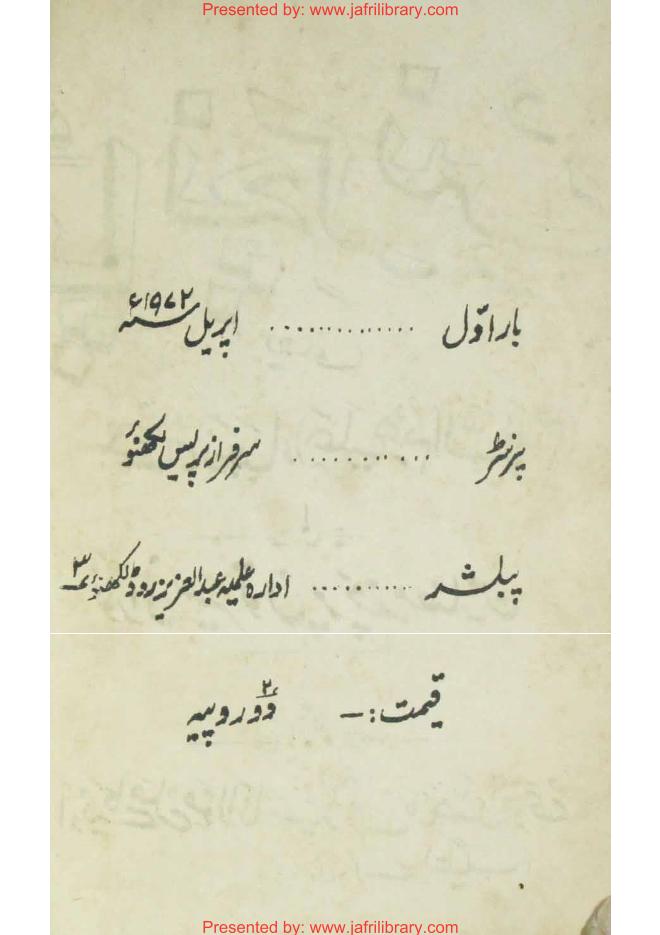 Presented by: www.jafrilibrary.com
بار اوّل .............. اپریل سنہ ۱۹۷۲ء
پرنٹر ............ سرفراز پریس لکھنؤ
پبلشر ........... ادارہ علمیہ عبدالعزیز روڈ لکھنؤ ۳
قیمت :- دو روپیہ ۲
Presented by: www.jafrilibrary.com